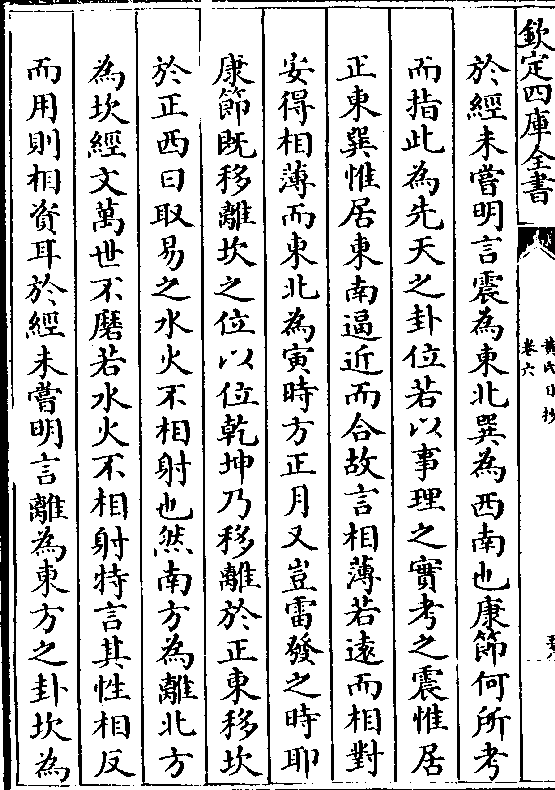 欽定四庫全書
黄氏日抄
卷六
於經未嘗明言震為東北巽為西南也康節何所考
而指此為先天之卦位若以事理之實考之震惟居
正東巽惟居東南逼近而合故言相薄若遠而相對
安得相薄而東北為寅時方正月又豈雷發之時耶
康節既移離坎之位以位乾坤乃移離於正東移坎
於正西曰取易之水火不相射也然南方為離北方
為坎經文萬世不磨若水火不相射特言其性相反
而用則相資耳於經未嘗明言離為東方之卦坎為